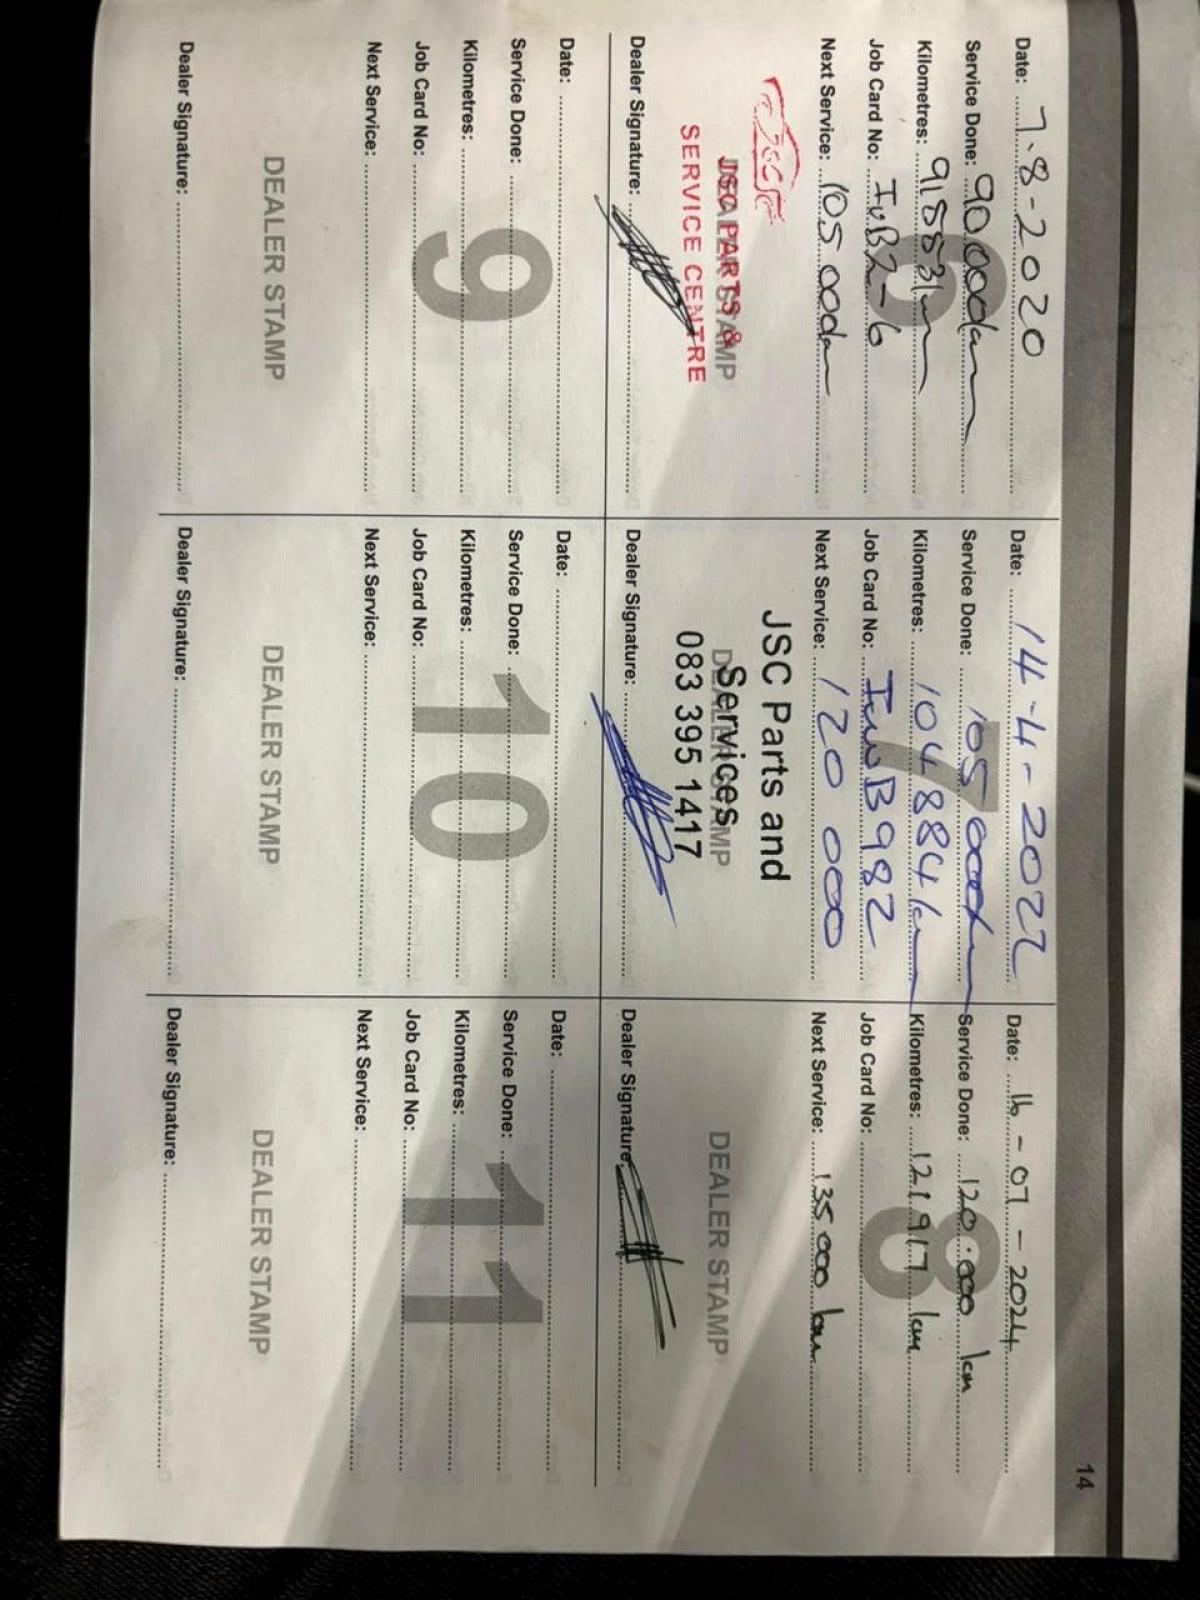 14
Date: 7-8-2020
Service Done: 90 000km
Kilometres: 91883km
Job Card No: IWB2-6
Next Service: 105 000km
6
DEALER STAMP
JSC PARTS &
SERVICE CENTRE
Dealer Signature:
Date: 14-4-2022
Service Done: 105 000km
Kilometres: 104 884km
Job Card No: IWB982
Next Service: 120 000
7
DEALER STAMP
JSC Parts and
Services
083 395 1417
Dealer Signature:
Date: 16-07-2024
Service Done: 120.000 km
Kilometres: 121917 km
Job Card No:
Next Service: 135 000 km
8
DEALER STAMP
Dealer Signature:
Date:
Service Done:
Kilometres:
Job Card No:
Next Service:
9
DEALER STAMP
Dealer Signature:
Date:
Service Done:
Kilometres:
Job Card No:
Next Service:
10
DEALER STAMP
Dealer Signature:
Date:
Service Done:
Kilometres:
Job Card No:
Next Service:
11
DEALER STAMP
Dealer Signature: